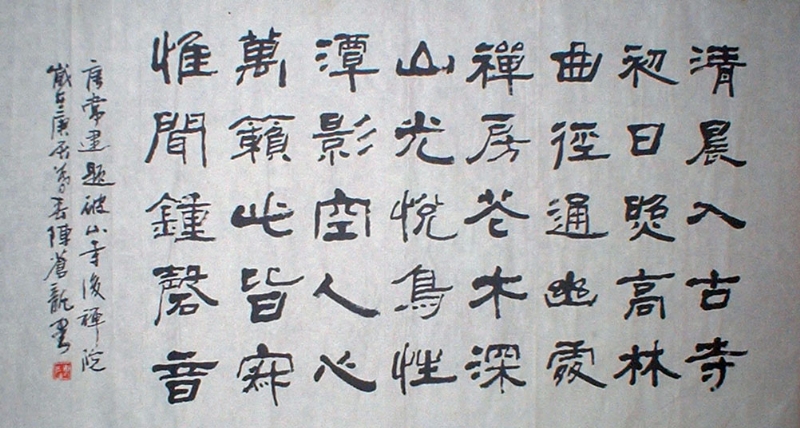 清晨入古寺
初日照高林
曲徑通幽處
禪房花木深
山光悅鳥性
潭影空人心
萬籟此皆寂
惟聞鍾磬音
唐常建題破山寺後禪院
歲在庚辰春陳蒼龍書